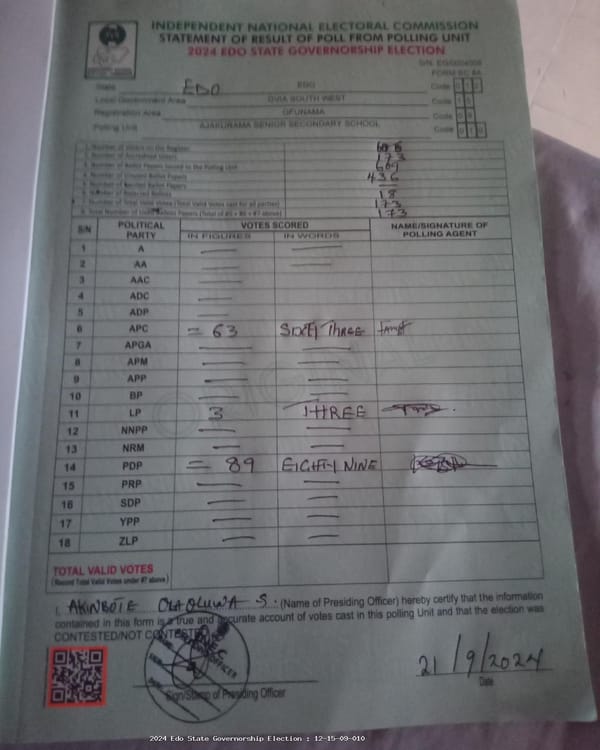 INDEPENDENT NATIONAL ELECTORAL COMMISSION
STATEMENT OF RESULT OF POLL FROM POLLING UNIT
2024 EDO STATE GOVERNORSHIP ELECTION
FORM EC 8A
State EDO EDO Code
Local Government Area OVIA SOUTH WEST Code
Registration Area OFUNAMA Code
Polling Unit AJAKURAMA SENIOR SECONDARY SCHOOL Code
1 Number of Voters on the Register
2 Number of Accredited Voters 173
3 Number of Ballot Papers Issued to the Polling Unit 609
4 Number of Unused Ballot Papers 436
5 Number of Spoiled Ballot Papers
6 Number of Rejected Ballots 18
7 Number of Total Valid Votes (Total Valid Votes cast for all parties) 173
8 Total Number of Used Ballot Papers (Total of #5 + #6 + #7 above) 173
S/N POLITICAL PARTY VOTES SCORED NAME/SIGNATURE OF POLLING AGENT
IN FIGURES IN WORDS
1 A
2 AA
3 AAC
4 ADC
5 ADP
6 APC = 63 SIXTY THREE
7 APGA
8 APM
9 APP
10 BP
11 LP 3 THREE
12 NNPP
13 NRM
14 PDP = 89 EIGHTY NINE
15 PRP
16 SDP
17 YPP
18 ZLP
TOTAL VALID VOTES
(Record Total Valid Votes under #7 above)
I, AKINBOTE OLAOLUWA S. (Name of Presiding Officer) hereby certify that the information
contained in this form is a true and accurate account of votes cast in this polling Unit and that the election was
CONTESTED/NOT CONTESTED
21/9/2024
Sign/Stamp of Presiding Officer Date
2024 Edo State Governorship Election : 12-15-09-010